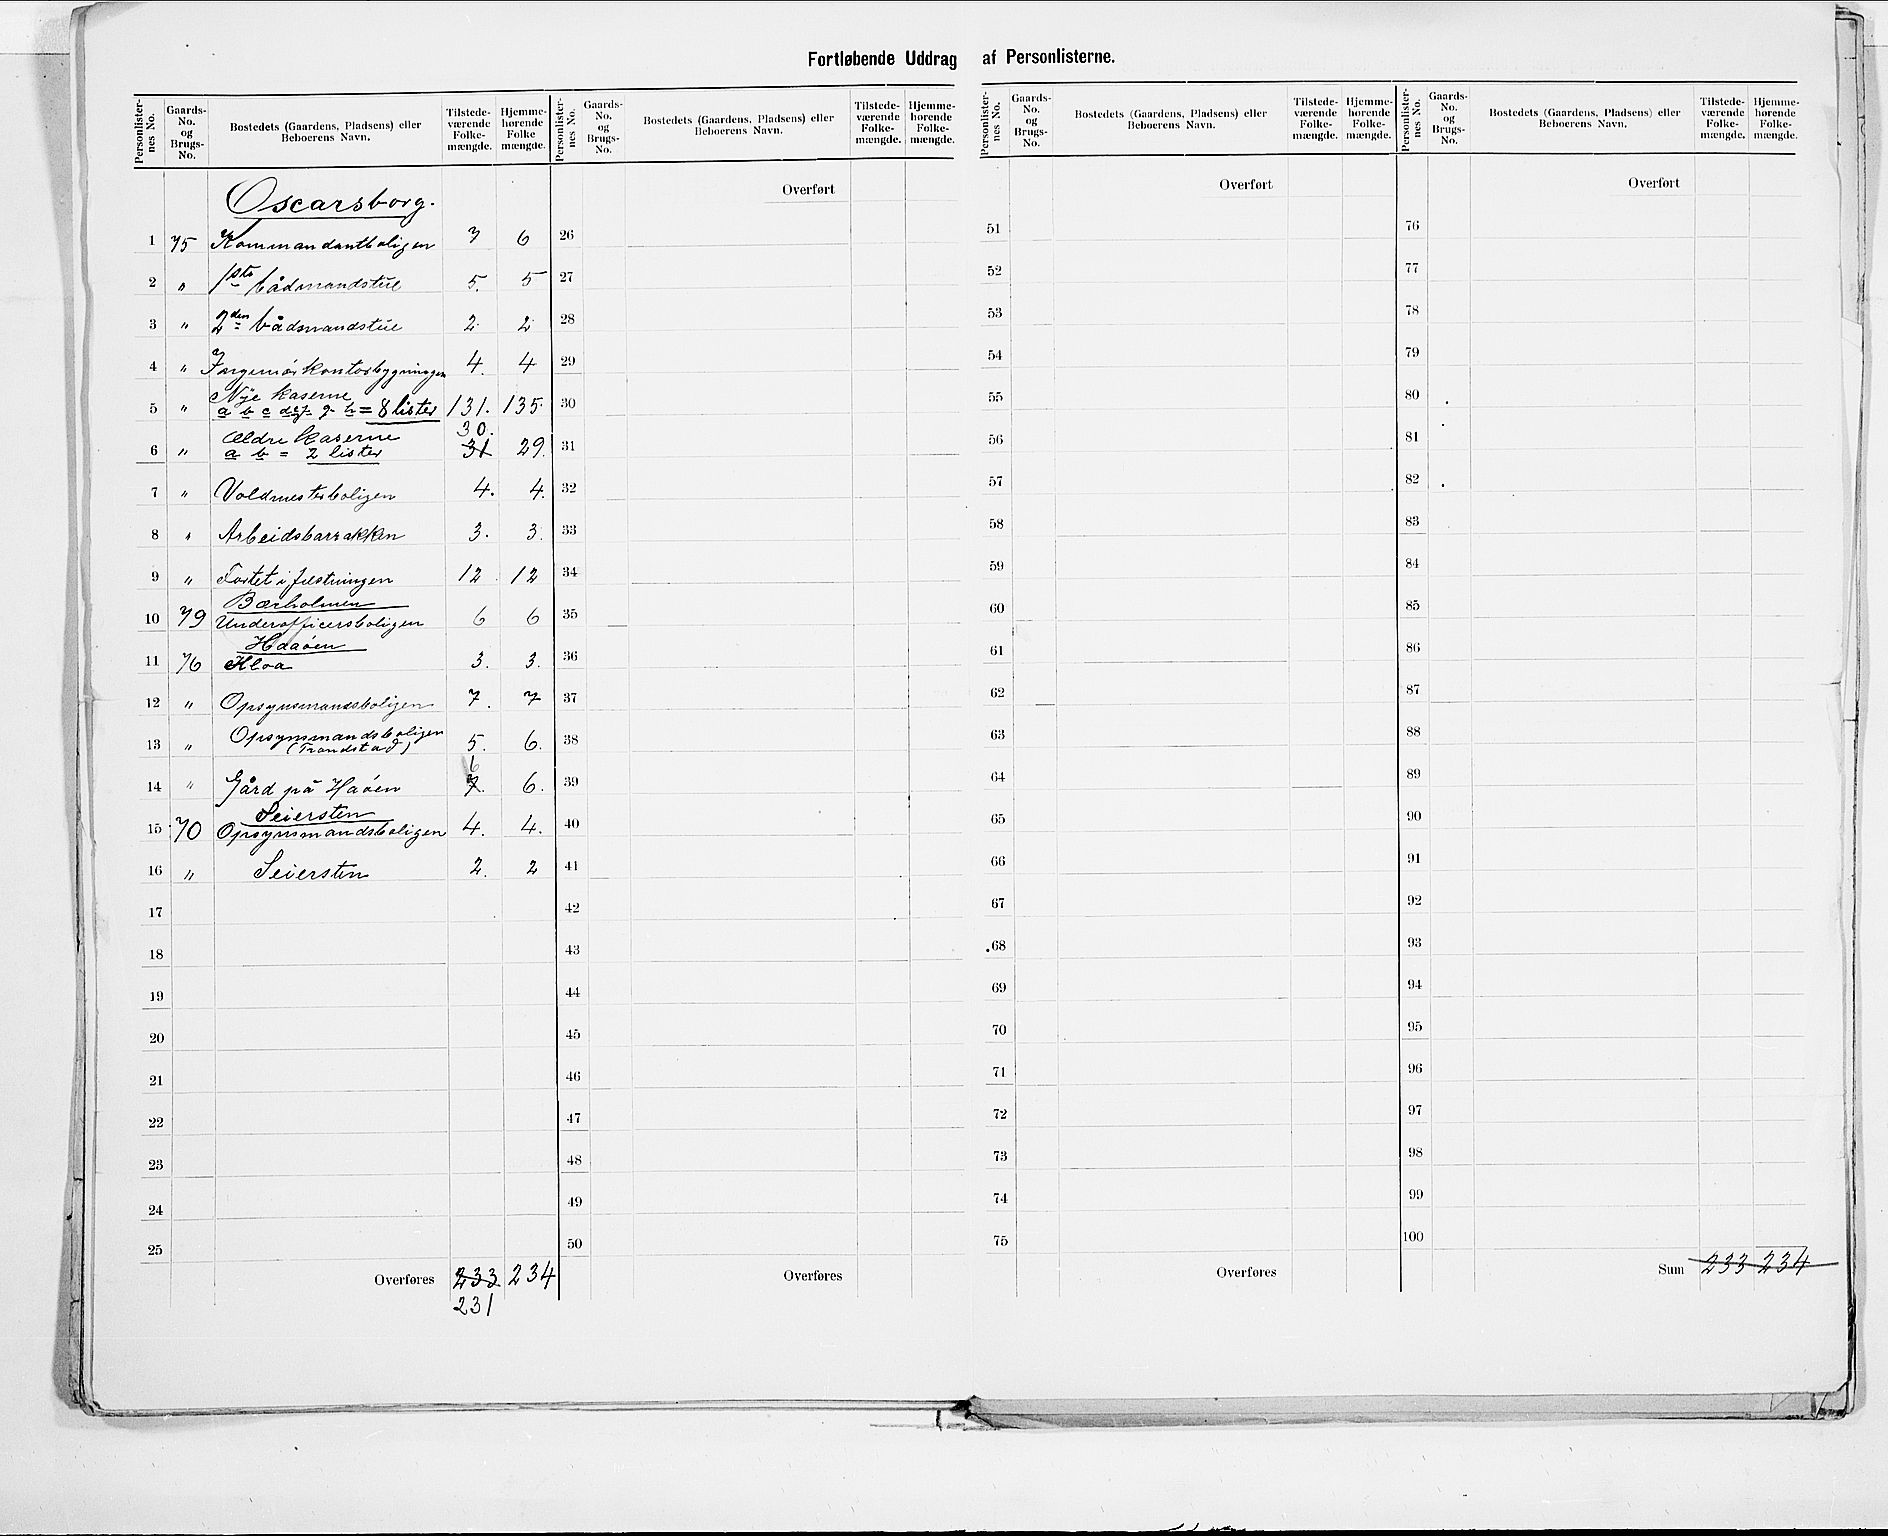 Fortløbende Uddrag af Personlisterne.
Personlister-nes No. | Gaards-No. og Brugs-No. | Bostedets (Gaardens, Pladsens) eller Beboerens Navn. | Tilstede-værende Folke-mængde. | Hjemme-hørende Folke mængde.
Oscarsborg.
1 | 75 | Kommandantboligen | 7 | 6
2 | " | 1ste bådmandstue | 5. | 5
3 | " | 2den bådsmandstue | 2 | 2
4 | " | Ingeniørkontorbygningen | 4. | 4
5 | " | Nye Kaserne
a b c d e f g h = 8 lister | 131. | 135.
6 | " | Ældre Kaserne | 30.
a b = 2 lister | 31 | 29.
7 | " | Voldmesterboligen | 4. | 4.
8 | " | Arbeidsbarrakken | 3. | 3.
9 | " | Fortet i fæstningen | 12. | 12
Bærholmen
10 | 79 | Underofficersboligen | 6 | 6
Haaøen
11 | 76 | Kloa | 3. | 3.
12 | " | Opsynsmandsboligen | 7. | 7
13 | " | Opsynsmandsboligen
(Trondstad) | 5. | 6.
6
14 | " | Gård på Haøen | 7. | 6.
Seiersten
15 | 70 | Opsynsmandsboligen | 4. | 4.
16 | " | Seiersten | 2. | 2
17
18
19
20
21
22
23
24
25
Overføres | 233 | 234
231
Personlister-nes No. | Gaards-No. og Brugs-No. | Bostedets (Gaardens, Pladsens) eller Beboerens Navn. | Tilstede-værende Folke-mængde. | Hjemme-hørende Folke-mængde.
Overført
26
27
28
29
30
31
32
33
34
35
36
37
38
39
40
41
42
43
44
45
46
47
48
49
50
Overføres
Personlister-nes No. | Gaards-No. og Brugs-No. | Bostedets (Gaardens, Pladsens) eller Beboerens Navn. | Tilstede-værende Folke-mængde. | Hjemme-hørende Folke-mængde.
Overført
51
52
53
54
55
56
57
58
59
60
61
62
63
64
65
66
67
68
69
70
71
72
73
74
75
Overføres
Personlister-nes No. | Gaards-No. og Brugs-No. | Bostedets (Gaardens, Pladsens) eller Beboerens Navn. | Tilstede-værende Folke-mængde. | Hjemme-hørende Folke-mængde.
Overført
76
77
78
79
80
81
82
83
84
85
86
87
88
89
90
91
92
93
94
95
96
97
98
99
100
Sum | 233 | 234